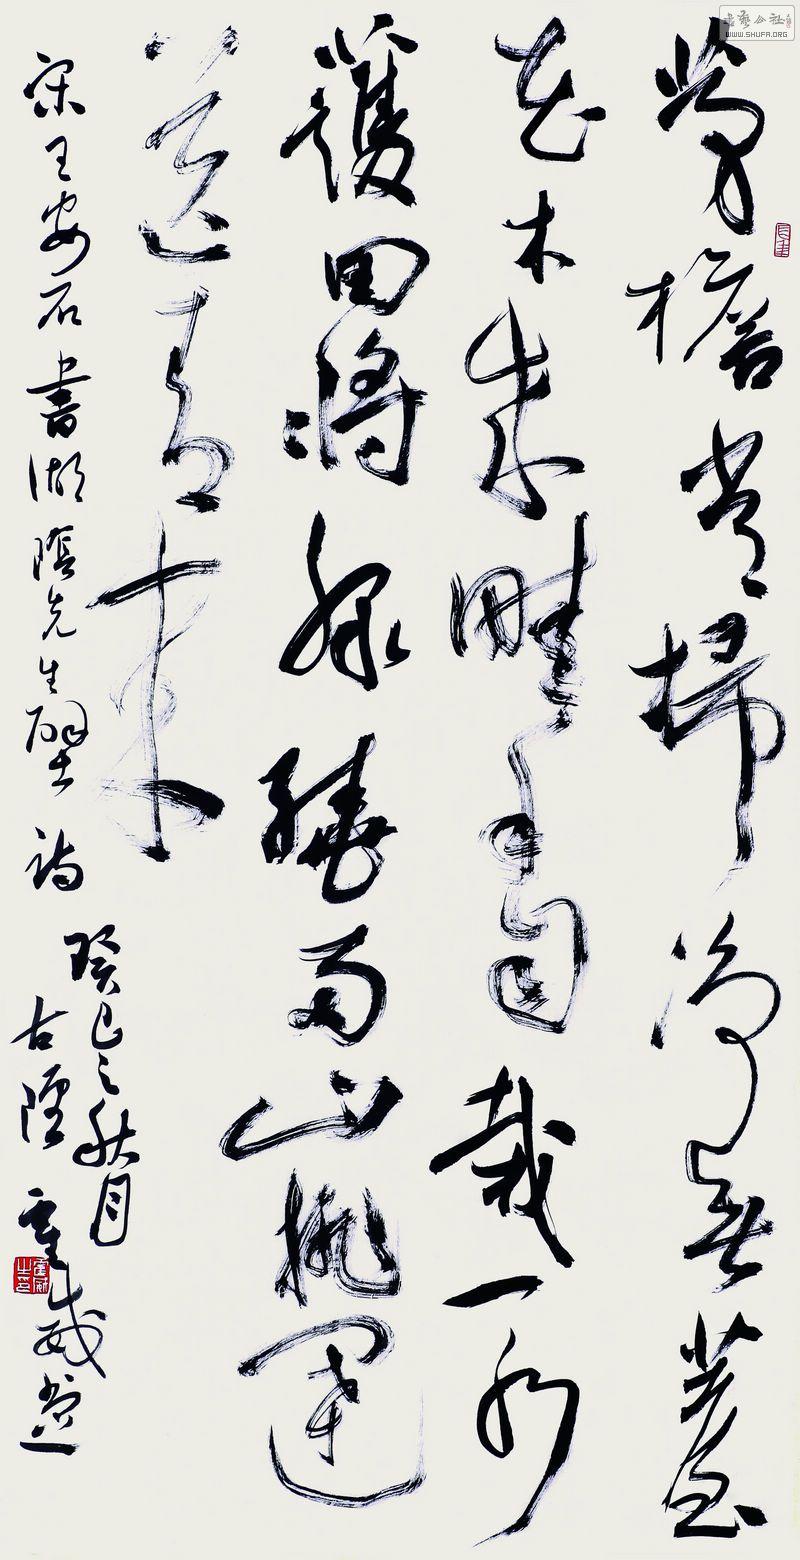 茅檐常掃淨無苔
花木成畦手自栽一水
護田將綠繞兩山排闥
送青來
宋王安石書湖陰先生壁詩
癸巳之秋月
古陘霍威书
霍威之印
書藝公社
WWW.SHUFA.ORG